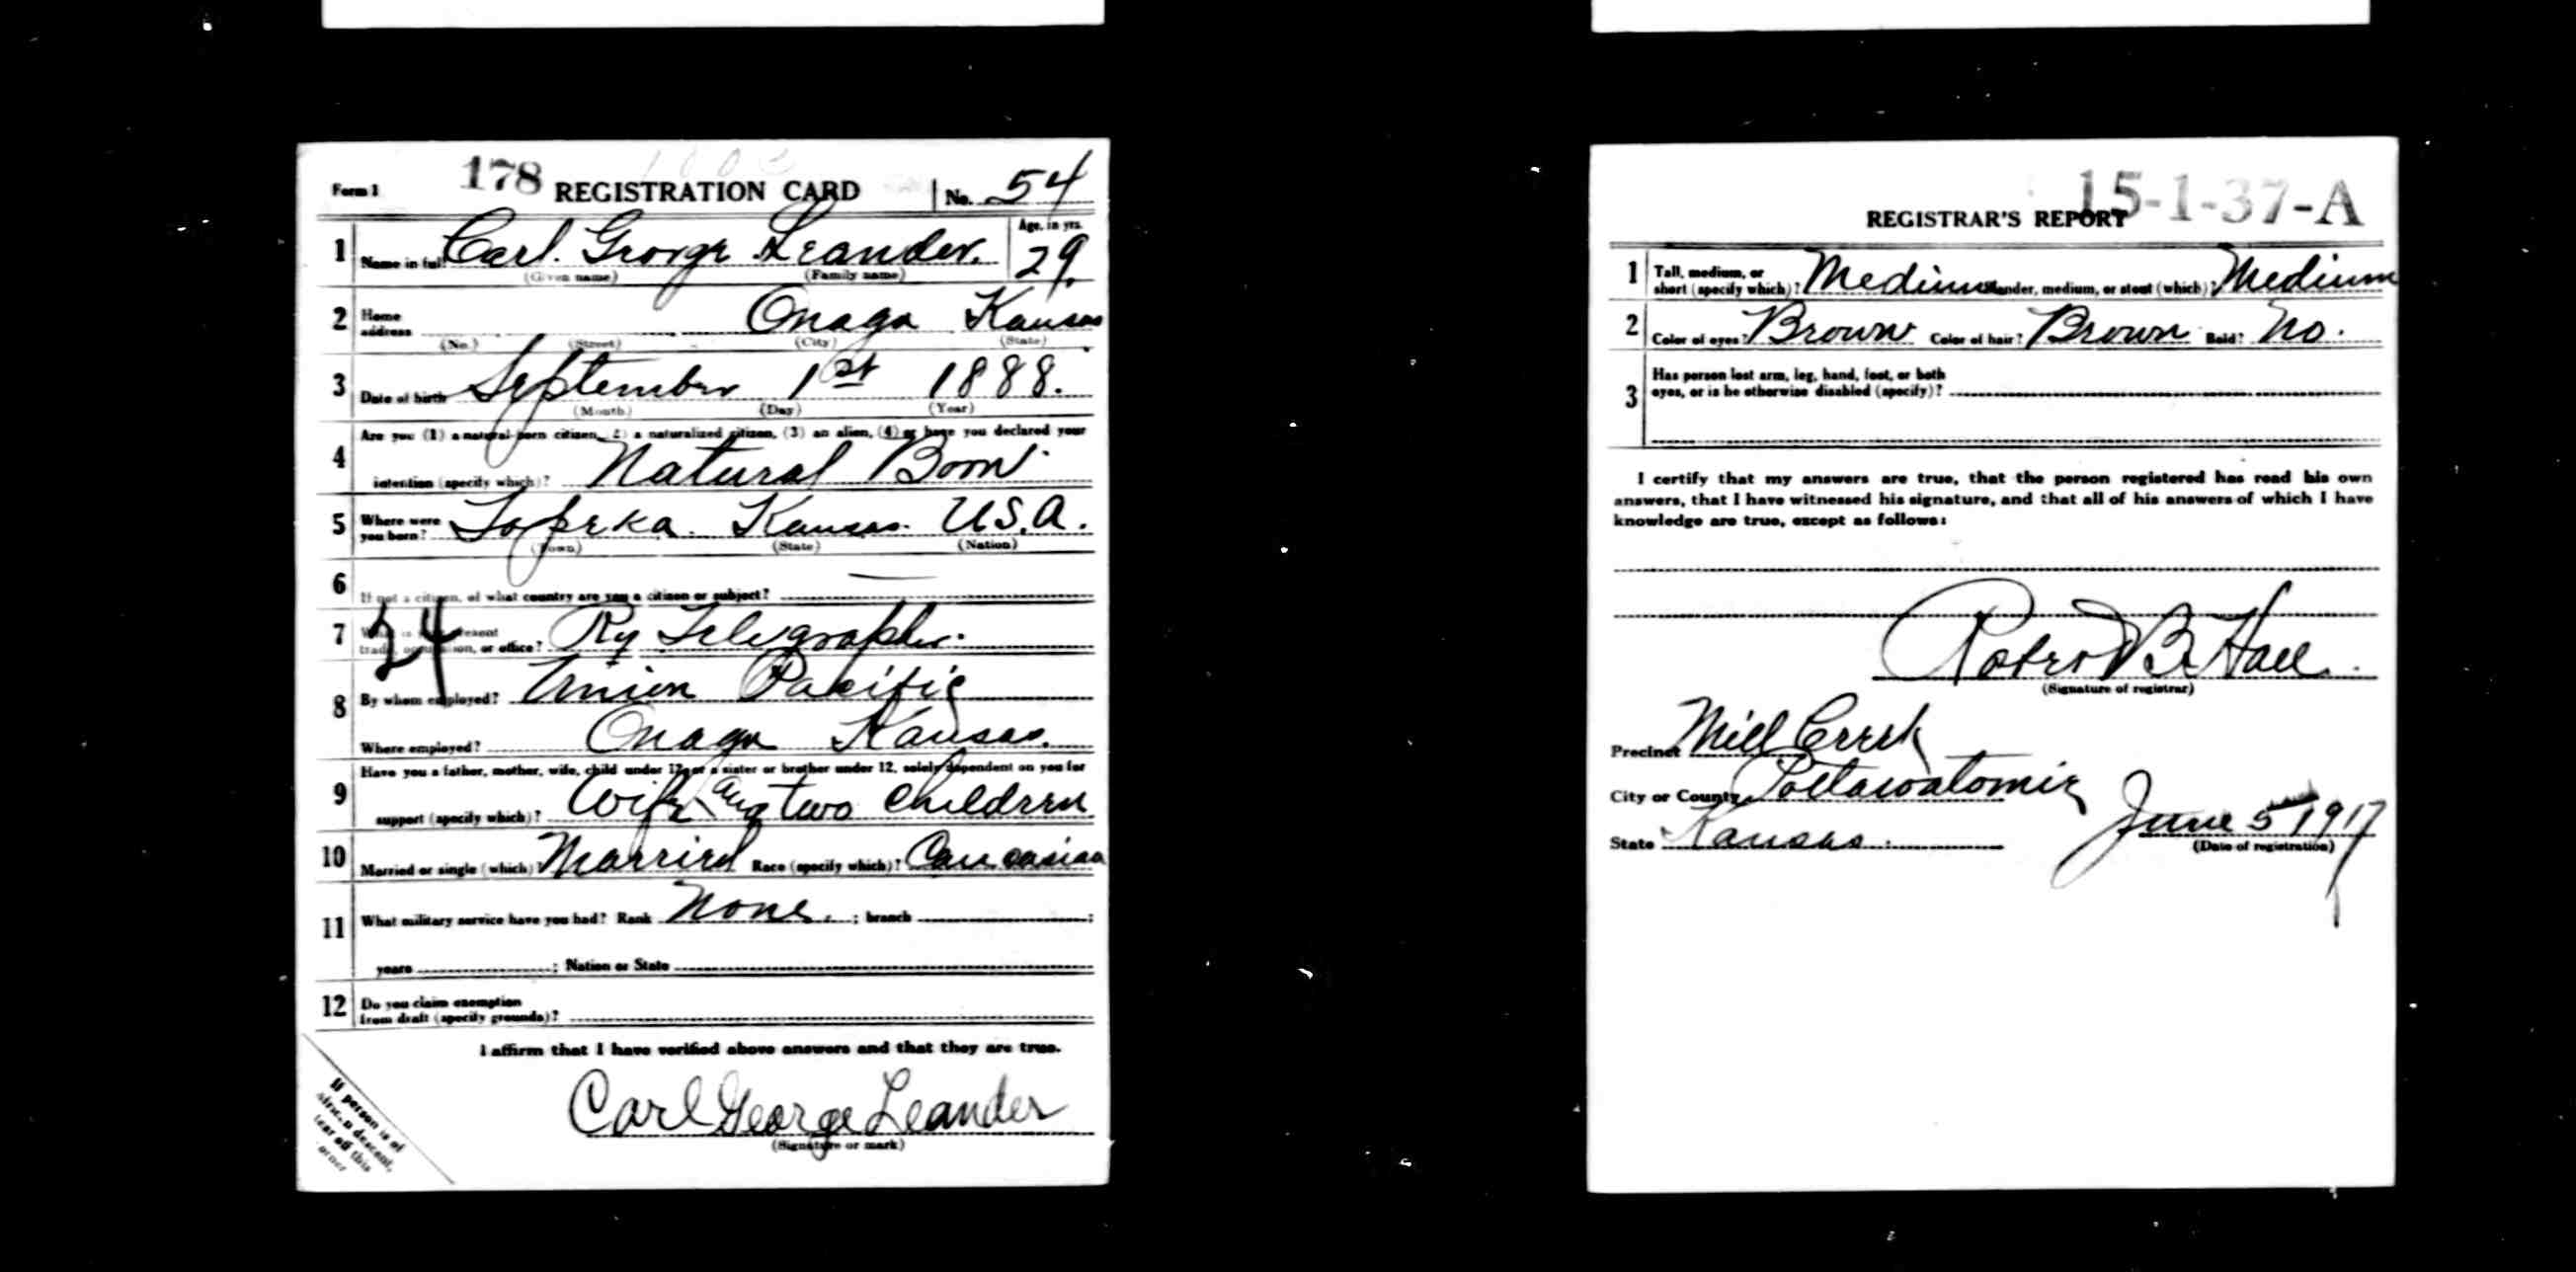 Form 1 178 REGISTRATION CARD No. 54
1 Name in full Carl. George Leander. Age, in yrs. 29.
(Given name) (Family name)
2 Home address Onaga Kansas
(No.) (Street) (City) (State)
3 Date of birth September 1st 1888.
(Month) (Day) (Year)
4 Are you (1) a natural-born citizen, (2) a naturalized citizen, (3) an alien, (4) or have you declared your
intention (specify which)? Natural Born
5 Where were you born? Topeka. Kansas. U.S.A.
(Town) (State) (Nation)
6 If not a citizen, of what country are you a citizen or subject? —
24
7 What is your present trade, occupation, or office? Ry Telegrapher.
8 By whom employed? Union Pacific
Where employed? Onaga Kansas.
9 Have you a father, mother, wife, child under 12, or a sister or brother under 12, solely dependent on you for
support (specify which)? Wife and two children
10 Married or single (which)? Married Race (specify which)? Caucasian
11 What military service have you had? Rank None. ; branch ;
years ; Nation or State
12 Do you claim exemption
from draft (specify grounds)?
I affirm that I have verified above answers and that they are true.
Carl George Leander
(Signature or mark)
If person is of
African descent,
tear off this
corner
15-1-37-A
REGISTRAR'S REPORT
1 Tall, medium, or short (specify which)? Medium Slender, medium, or stout (which)? Medium
2 Color of eyes? Brown Color of hair? Brown Bald? No.
3 Has person lost arm, leg, hand, foot, or both
eyes, or is he otherwise disabled (specify)?
I certify that my answers are true, that the person registered has read his own
answers, that I have witnessed his signature, and that all of his answers of which I have
knowledge are true, except as follows:
Robert B. Hall
(Signature of registrar)
Precinct Mill Creek
City or County Pottawatomie
State Kansas. June 5 1917
(Date of registration)